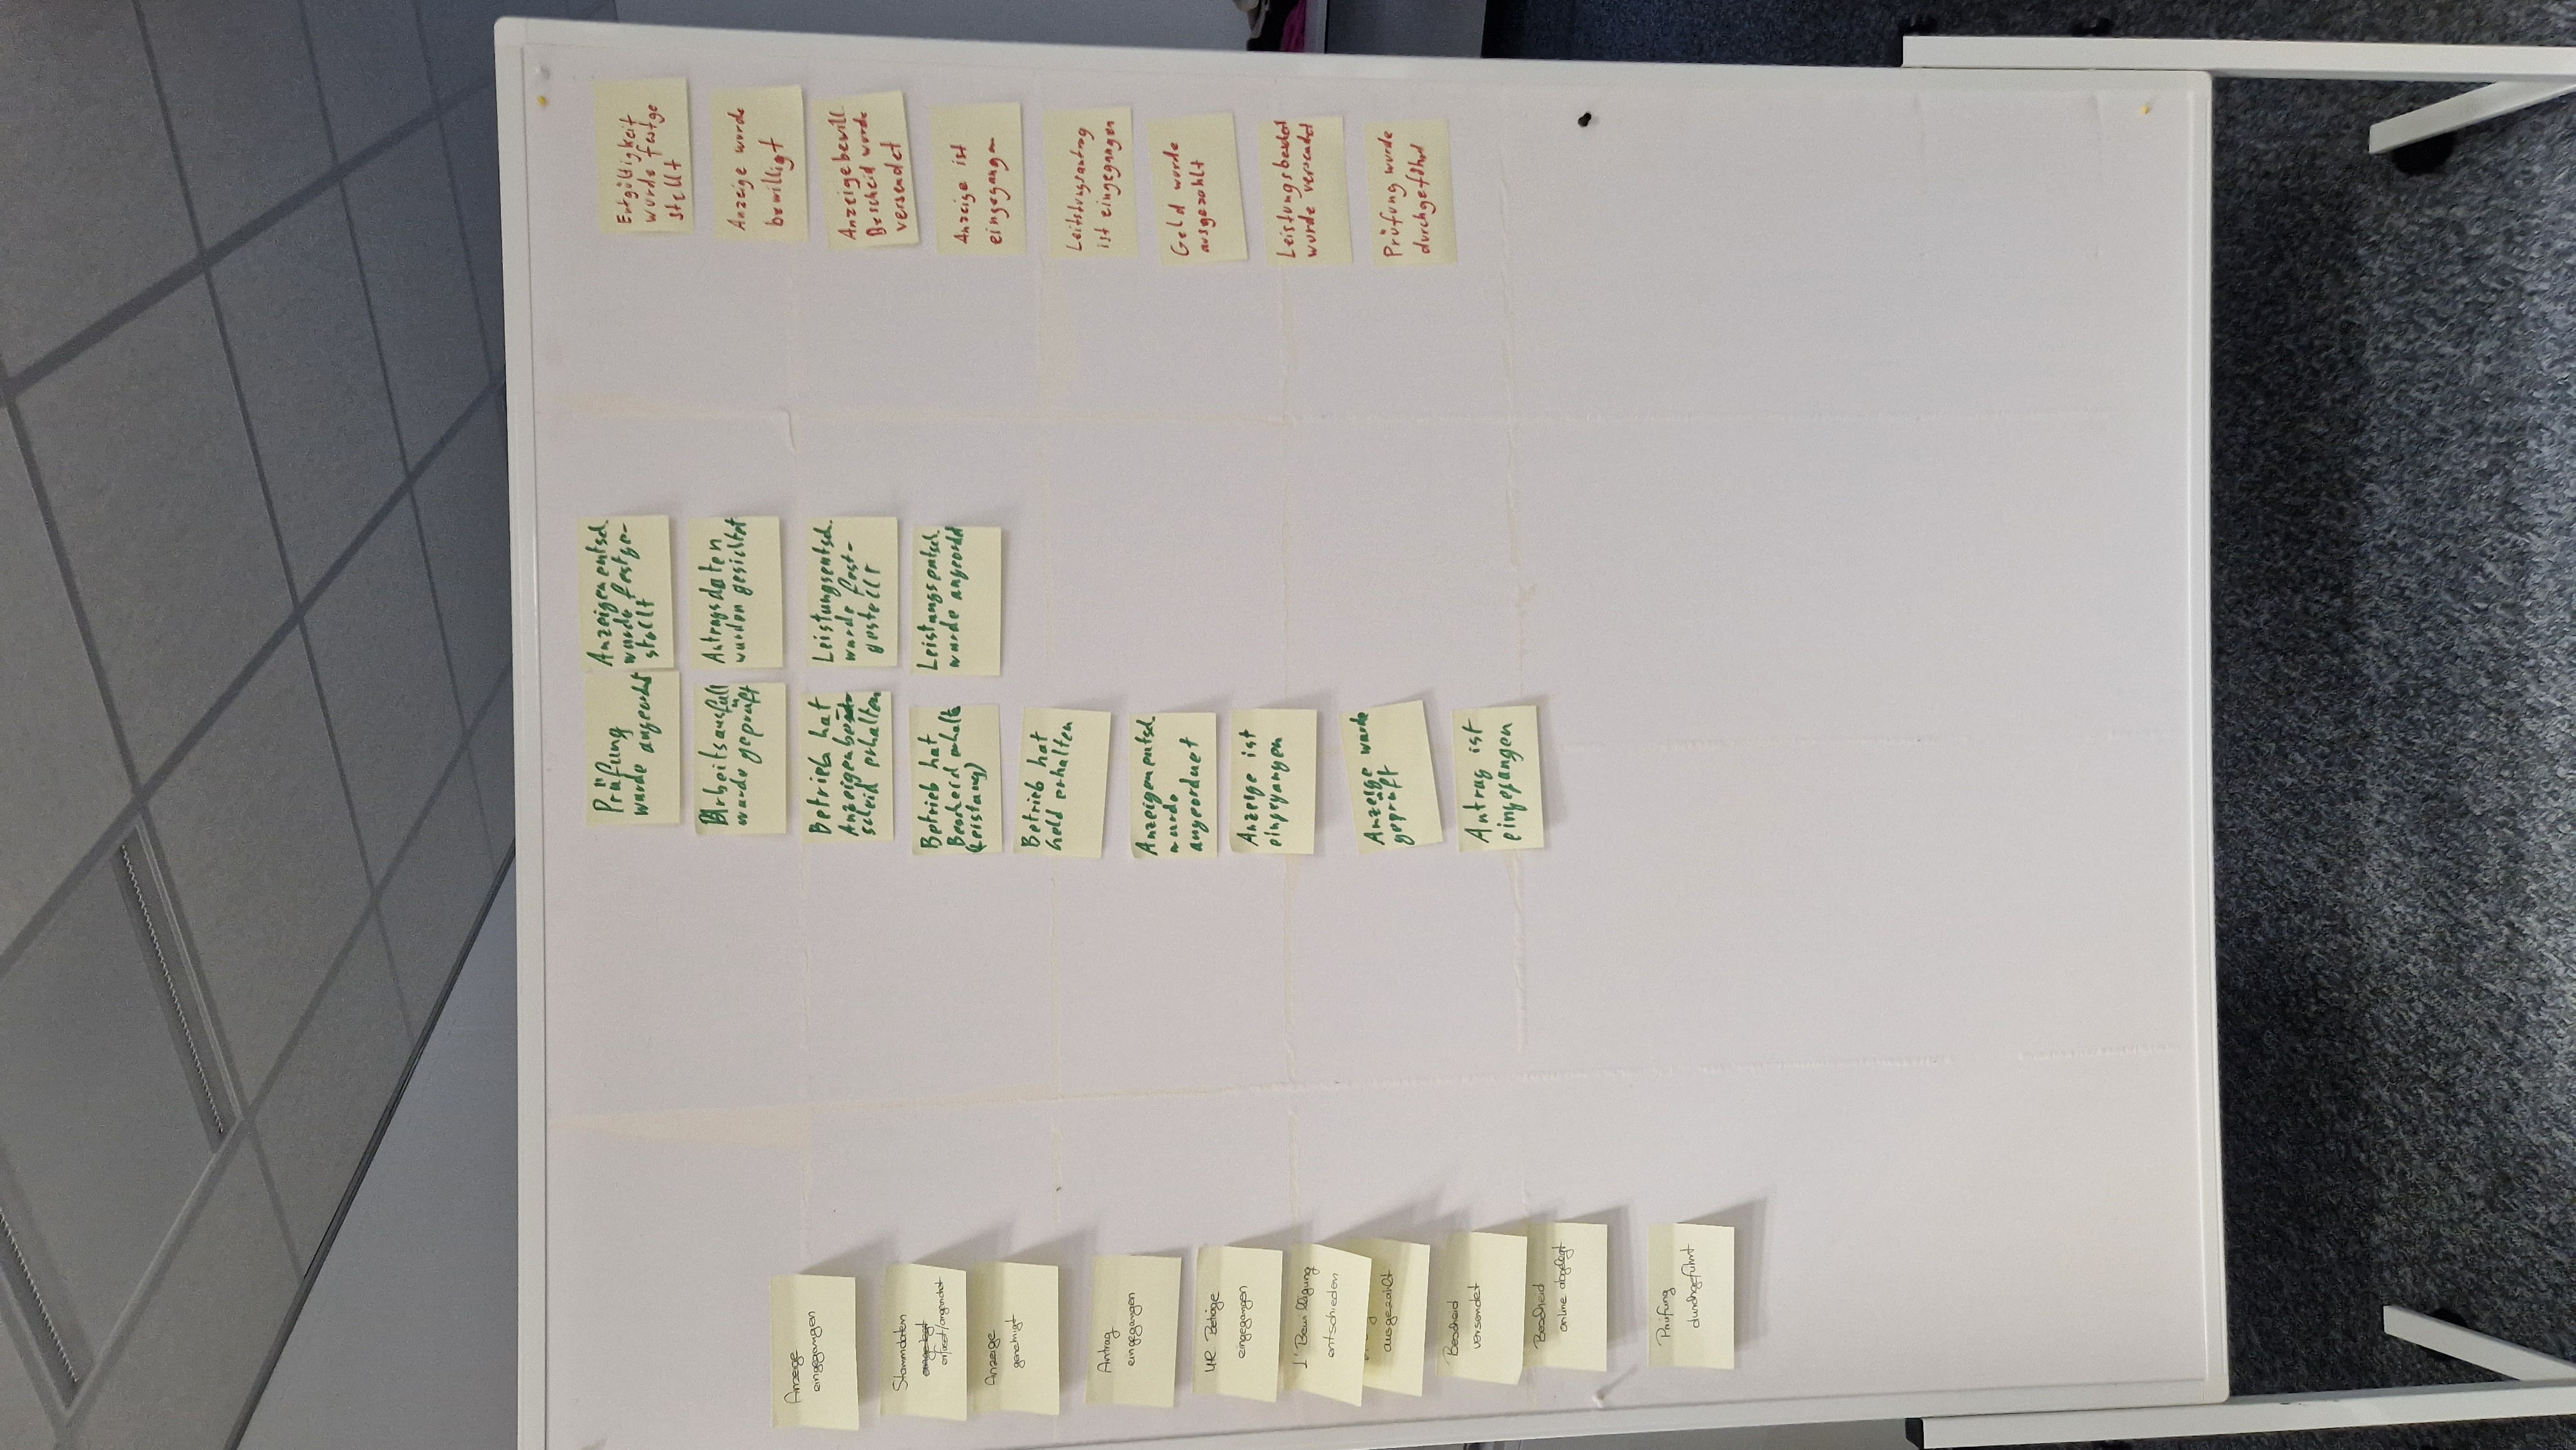 Anzeige
eingegangen
Stammdaten
angelegt
erfasst/angendet
Anzeige
genehmigt
Antrag
eingegangen
eingegangen
L'Bewilligung
entschieden
ausgezahlt
Bescheid
versendet
Bescheid
online abgelegt
Prüfung
durchgeführt
Prüfung
wurde angeordnet
Arbeitsausfall
wurde geprüft
Betrieb hat
Anzeigenbe
scheid erhalten
Betrieb hat
Bescheid erhalte
(Leistung)
Betrieb hat
Geld erhalten
Anzeigenentsch.
wurde
angeordnet
Anzeige ist
eingegangen
Anzeige wurde
geprüft
Antrag ist
eingegangen
Anzeigenentsch.
wurde festge-
stellt
Antragsdaten
wurden gesichtet
Leistungsentsch.
wurde fest-
gestellt
Leistungsentsch.
wurde angeordnet
Entgültigkeit
wurde festge
stellt
Anzeige wurde
bewilligt
Anzeigebewill.
Bescheid wurde
versendet
Anzeige ist
eingegangen
Leitstungsantrag
ist eingegangen
Geld wurde
ausgezahlt
Leistungsbescheid
wurde versendet
Prüfung wurde
durchgeführt